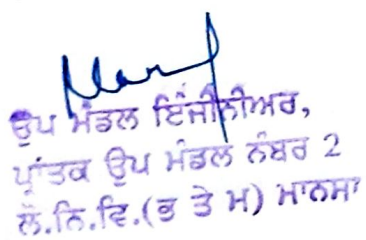 ਉਪ ਮੰਡਲ ਇੰਜੀਨੀਅਰ,
ਪ੍ਰਾਂਤਕ ਉਪ ਮੰਡਲ ਨੰਬਰ 2
ਲੋ.ਨਿ.ਵਿ.(ਭ ਤੇ ਮ) ਮਾਨਸਾ